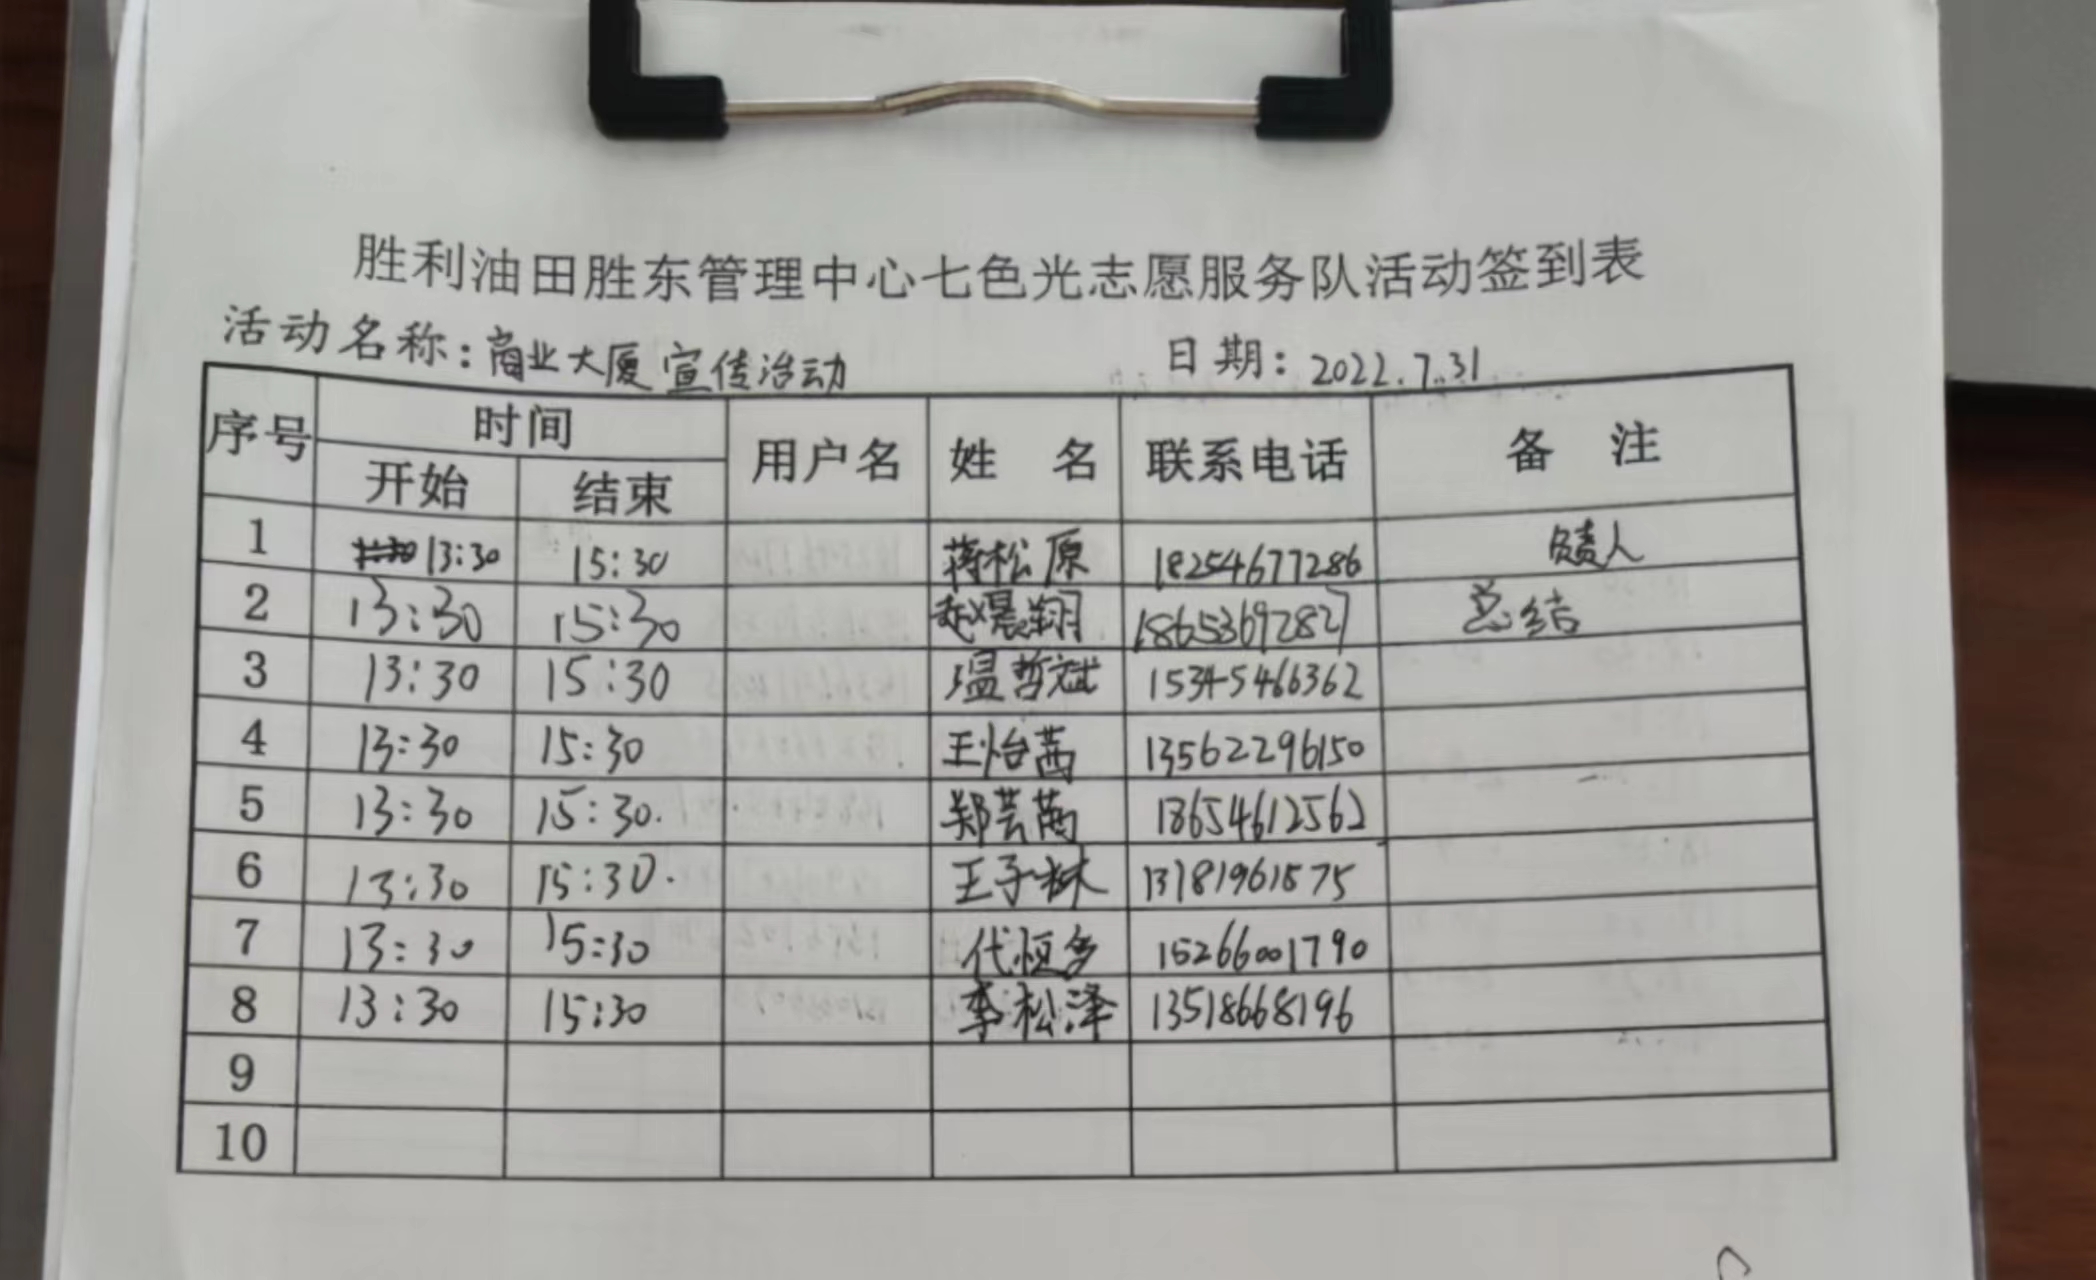 胜利油田胜东管理中心七色光志愿服务队活动签到表
活动名称：商业大厦宣传活动 日期：2022.7.31
序号 时间 用户名 姓名 联系电话 备注
开始 结束
1 13:30 15:30 蒋松原 18254677286 负责人
2 13:30 15:30 赵晨翔 18653692827 总结
3 13:30 15:30 温哲斌 15345466362
4 13:30 15:30 王怡茜 13562296150
5 13:30 15:30. 郑芸茜 18654612562
6 13:30 15:30. 王子林 13181961575
7 13:30 15:30 代恒多 15266001790
8 13:30 15:30 李松泽 13518668196
9
10